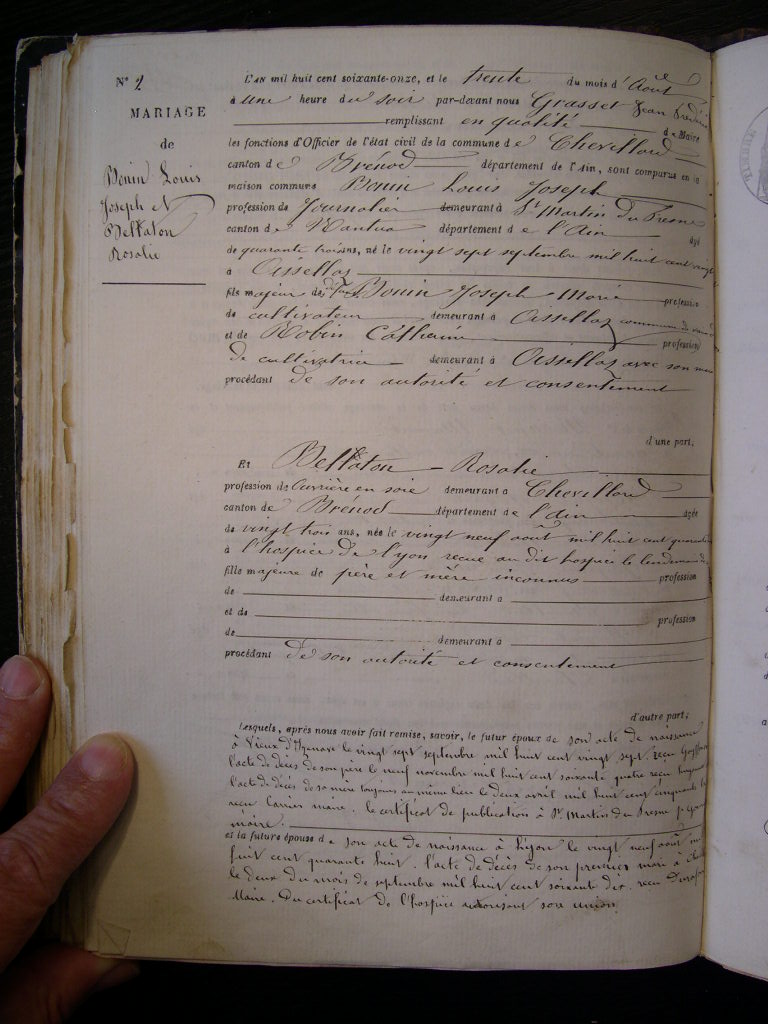 N° 2
MARIAGE
de
Bonin Louis
Joseph et
Bellaton
Rosalie
L'AN mil huit cent soixante-onze, et le trente du mois d'Août
à une heure du soir par-devant nous Grasset Jean
remplissant en qualité de Maire
les fonctions d'Officier de l'état civil de la commune de Chevillard
canton de Brénod département de l'Ain, sont comparus en la
maison commune Bonin Louis Joseph
profession de Journalier demeurant à St Martin du Fresne
canton de Nantua département de l'Ain âgé
de quarante trois ans, né le vingt sept septembre mil huit cent vingt
à Oissellaz
fils majeur de Bonin Joseph Marie profession
de cultivateur demeurant à Oissellaz commune de
et de Robin Catherine profession
de cultivatrice demeurant à Oissellaz avec son
procédant de son autorité et consentement
d'une part;
Et Bellaton Rosalie
profession de ouvrière en soie demeurant à Chevillard
canton de Brénod département de l'Ain âgée
de vingt trois ans, née le vingt neuf août mil huit cent quarante
à l'hospice de Lyon recue au dit hospice le lendemain
fille majeure de père et mère inconnus profession
de demeurant à
et de profession
de demeurant à
procédant de son autorité et consentement
d'autre part;
Lesquels, après nous avoir fait remise, savoir, le futur époux de son acte de naissance
à Vieux d'Izenave le vingt sept septembre mil huit cent vingt sept reçu
l'acte de décès de son père le neuf novembre mil huit cent soixante quatre reçu
l'acte de décès de sa mère toujours au même lieu le deux avril mil huit cent cinquante
reçu Carrier maire. le certificat de publication à St Martin du Fresne
maire.
et la future épouse de son acte de naissance à Lyon le vingt neuf août mil
huit cent quarante huit. l'acte de décès de son premier mari à
le deux du mois de septembre mil huit cent soixante dix. reçu
Maire. Du certificat de l'hospice autorisant son union